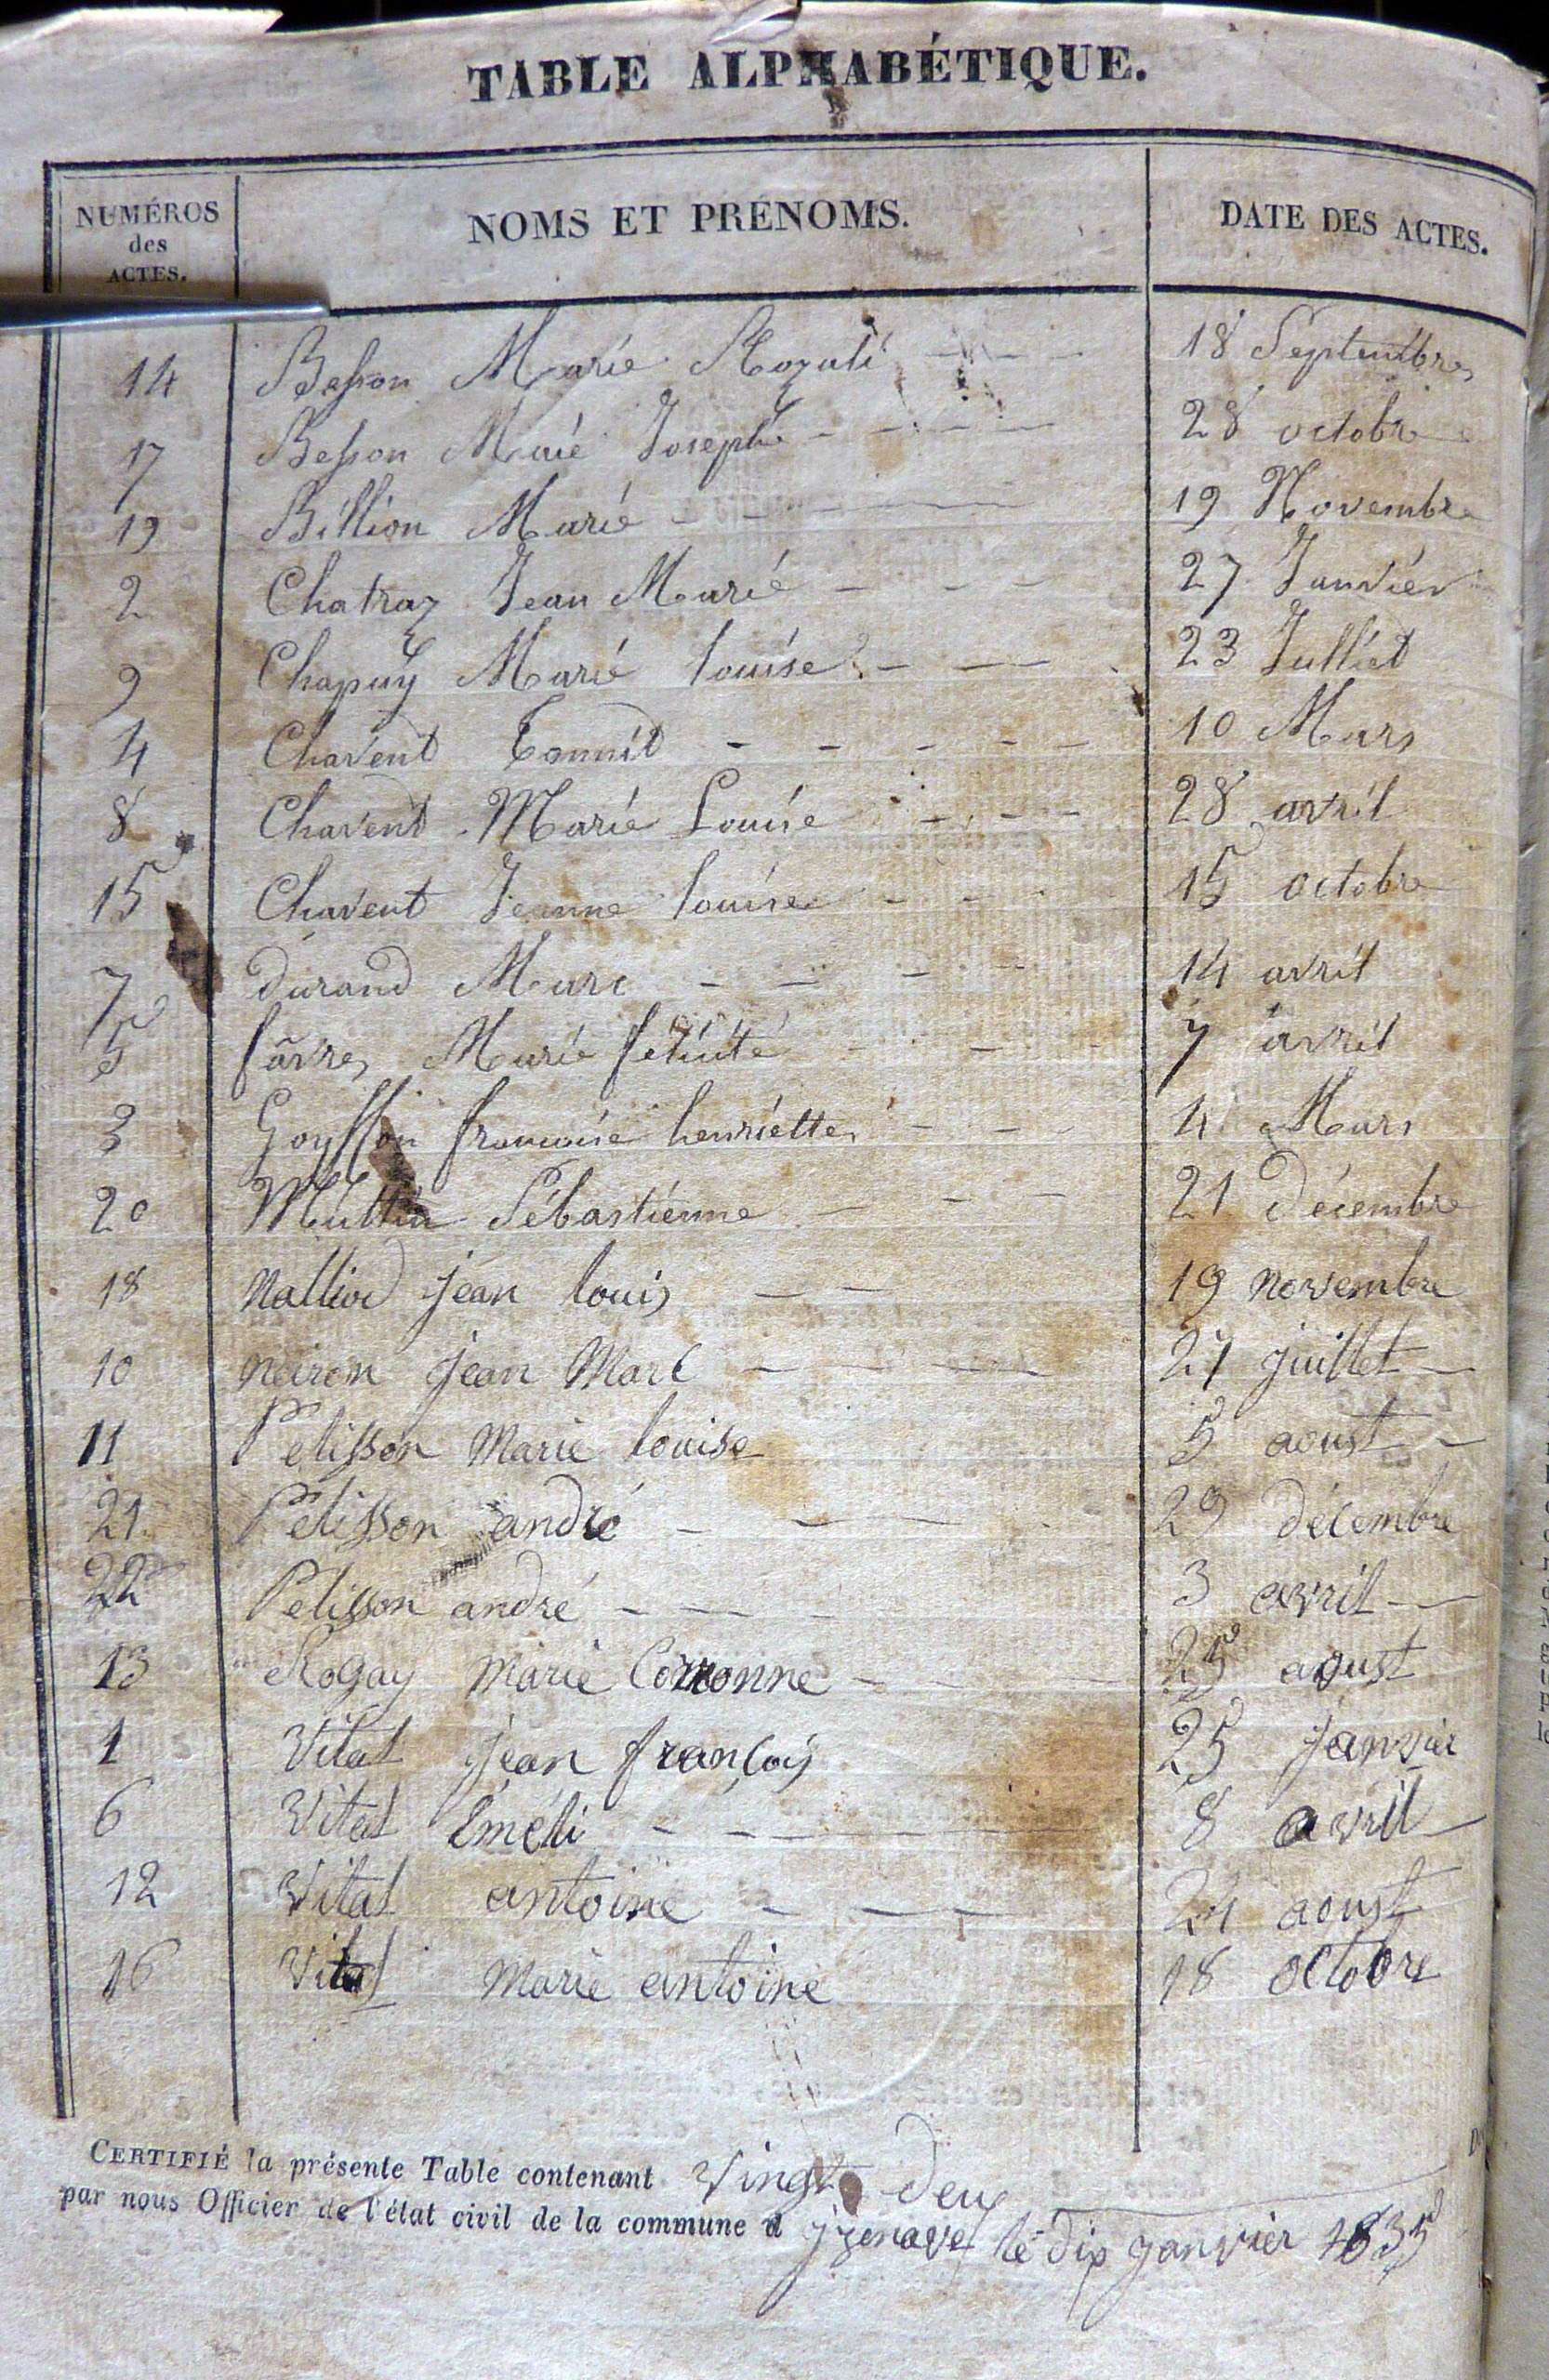 TABLE ALPHABÉTIQUE.
NUMÉROS des ACTES. NOMS ET PRÉNOMS. DATE DES ACTES.
14 Besson Marie Rozali 18 Septembre
17 Besson Marie Josephe 28 octobre
19 Billion Marie 19 Novembre
2 Chatray Jean Marie 27 Janvier
9 Chapuy Marie louise 23 Julliet
4 Chavent 10 Mars
8 Chavent Marie Louise 28 avril
15 Chavent Jeanne louise 15 octobre
7 durand Marc 14 avril
5 favre Marie felicité 7 avril
3 Goyffon francoise henriette 4 Mars
20 Sébastienne 21 décembre
18 Nalliod jean louis 19 novembre
10 neiron jean Marc 27 juillet
11 Pelisson Marie louise 5 aoust
21 Pelisson andré 29 décembre
22 Pelisson andré 3 avril
13 Rogay Marie 25 aoust
1 Vital jean françois 25 janvier
6 Vital Eméli 8 avril
12 Vital antoine 24 aoust
16 Vital Marie antoine 18 octobre
CERTIFIÉ la présente Table contenant Vingt deux
par nous Officier de l'état civil de la commune d jzenave le dix janvier 1835